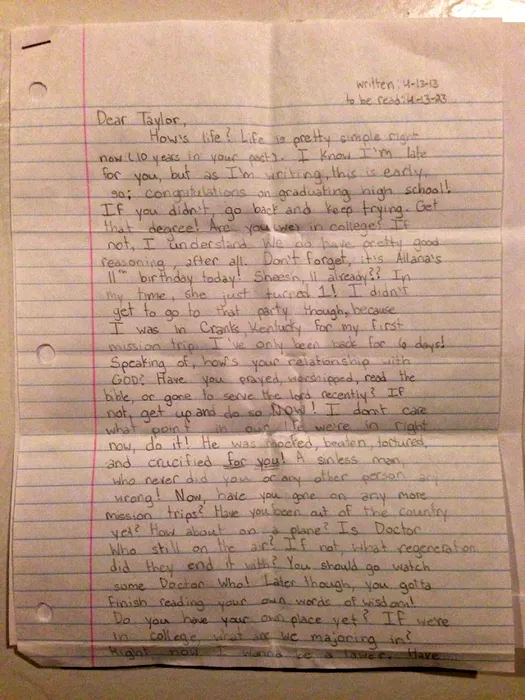 written: 4-13-13
to be read: 4-13-23
Dear Taylor,
How's life? Life is pretty simple right
now (10 years in your past). I know I'm late
for you, but as I'm writing, this is early,
so; congratulations on graduating high school!
If you didn't, go back and keep trying. Get
that degree! Are you (we) in college? If
not, I understand. We do have pretty good
reasoning, after all. Don't forget, it's Allana's
11th birthday today! Sheesh, 11 already?! In
my time, she just turned 1! I didn't
get to go to that party, though, because
I was in Cranks, Kentucky for my first
mission trip. I've only been back for 6 days!
Speaking of, how's your relationship with
GOD? Have you prayed, worshipped, read the
bible, or gone to serve the lord recently? If
not, get up and do so NOW! I don't care
what point in our life we're in right
now, do it! He was mocked, beaten, tortured,
and crucified for you! A sinless man,
who never did you or any other person any
wrong! Now, have you gone on any more
mission trips? Have you been out of the country
yet? How about on a plane? Is Doctor
Who still on the air? If not, what regeneration
did they end it with? You should go watch
some Doctor Who! Later though, you gotta
finish reading your own words of wisdom!
Do you have your own place yet? If we're
in college, what are we majoring in?
Right now I wanna be a lawer. Have